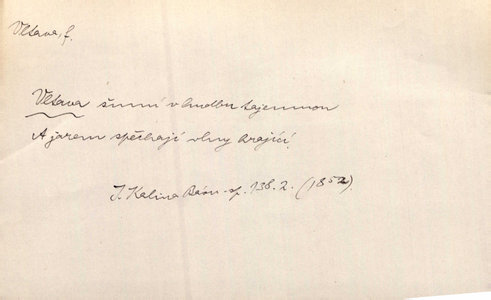 Vltava, f.
Vltava šumní v hudbu tajemnou
A jarem spěchají vlny hrající.
J. Kalina Básn. sp. 138.2. (1852)